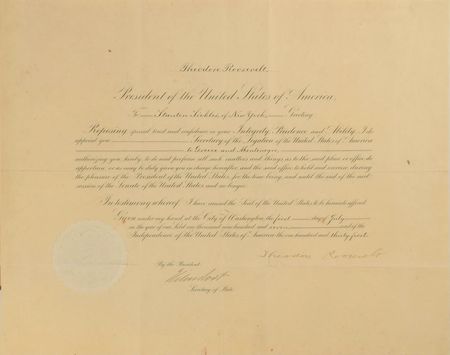 Theodore Roosevelt,
President of the United States of America,
To Stanton Sickles, of New York, Greeting
Reposing special trust and confidence in your Integrity, Prudence and Ability, I do
appoint you Secretary of the Legation of the United States of America
to Greece and Montenegro,
authorizing you, hereby, to do and perform all such matters and things as to the said place or office do
appertain, or as may be duly given you in charge hereafter, and the said office to hold and exercise during
the pleasure of the President of the United States, for the time being, and until the end of the next
session of the Senate of the United States and no longer.
In testimony whereof, I have caused the Seal of the United States to be hereunto affixed.
Given under my hand at the City of Washington, the first day of July
in the year of our Lord one thousand nine hundred and seven and of the
Independence of the United States of America the one hundred and thirty-first.
Theodore Roosevelt
By the President:
Secretary of State.